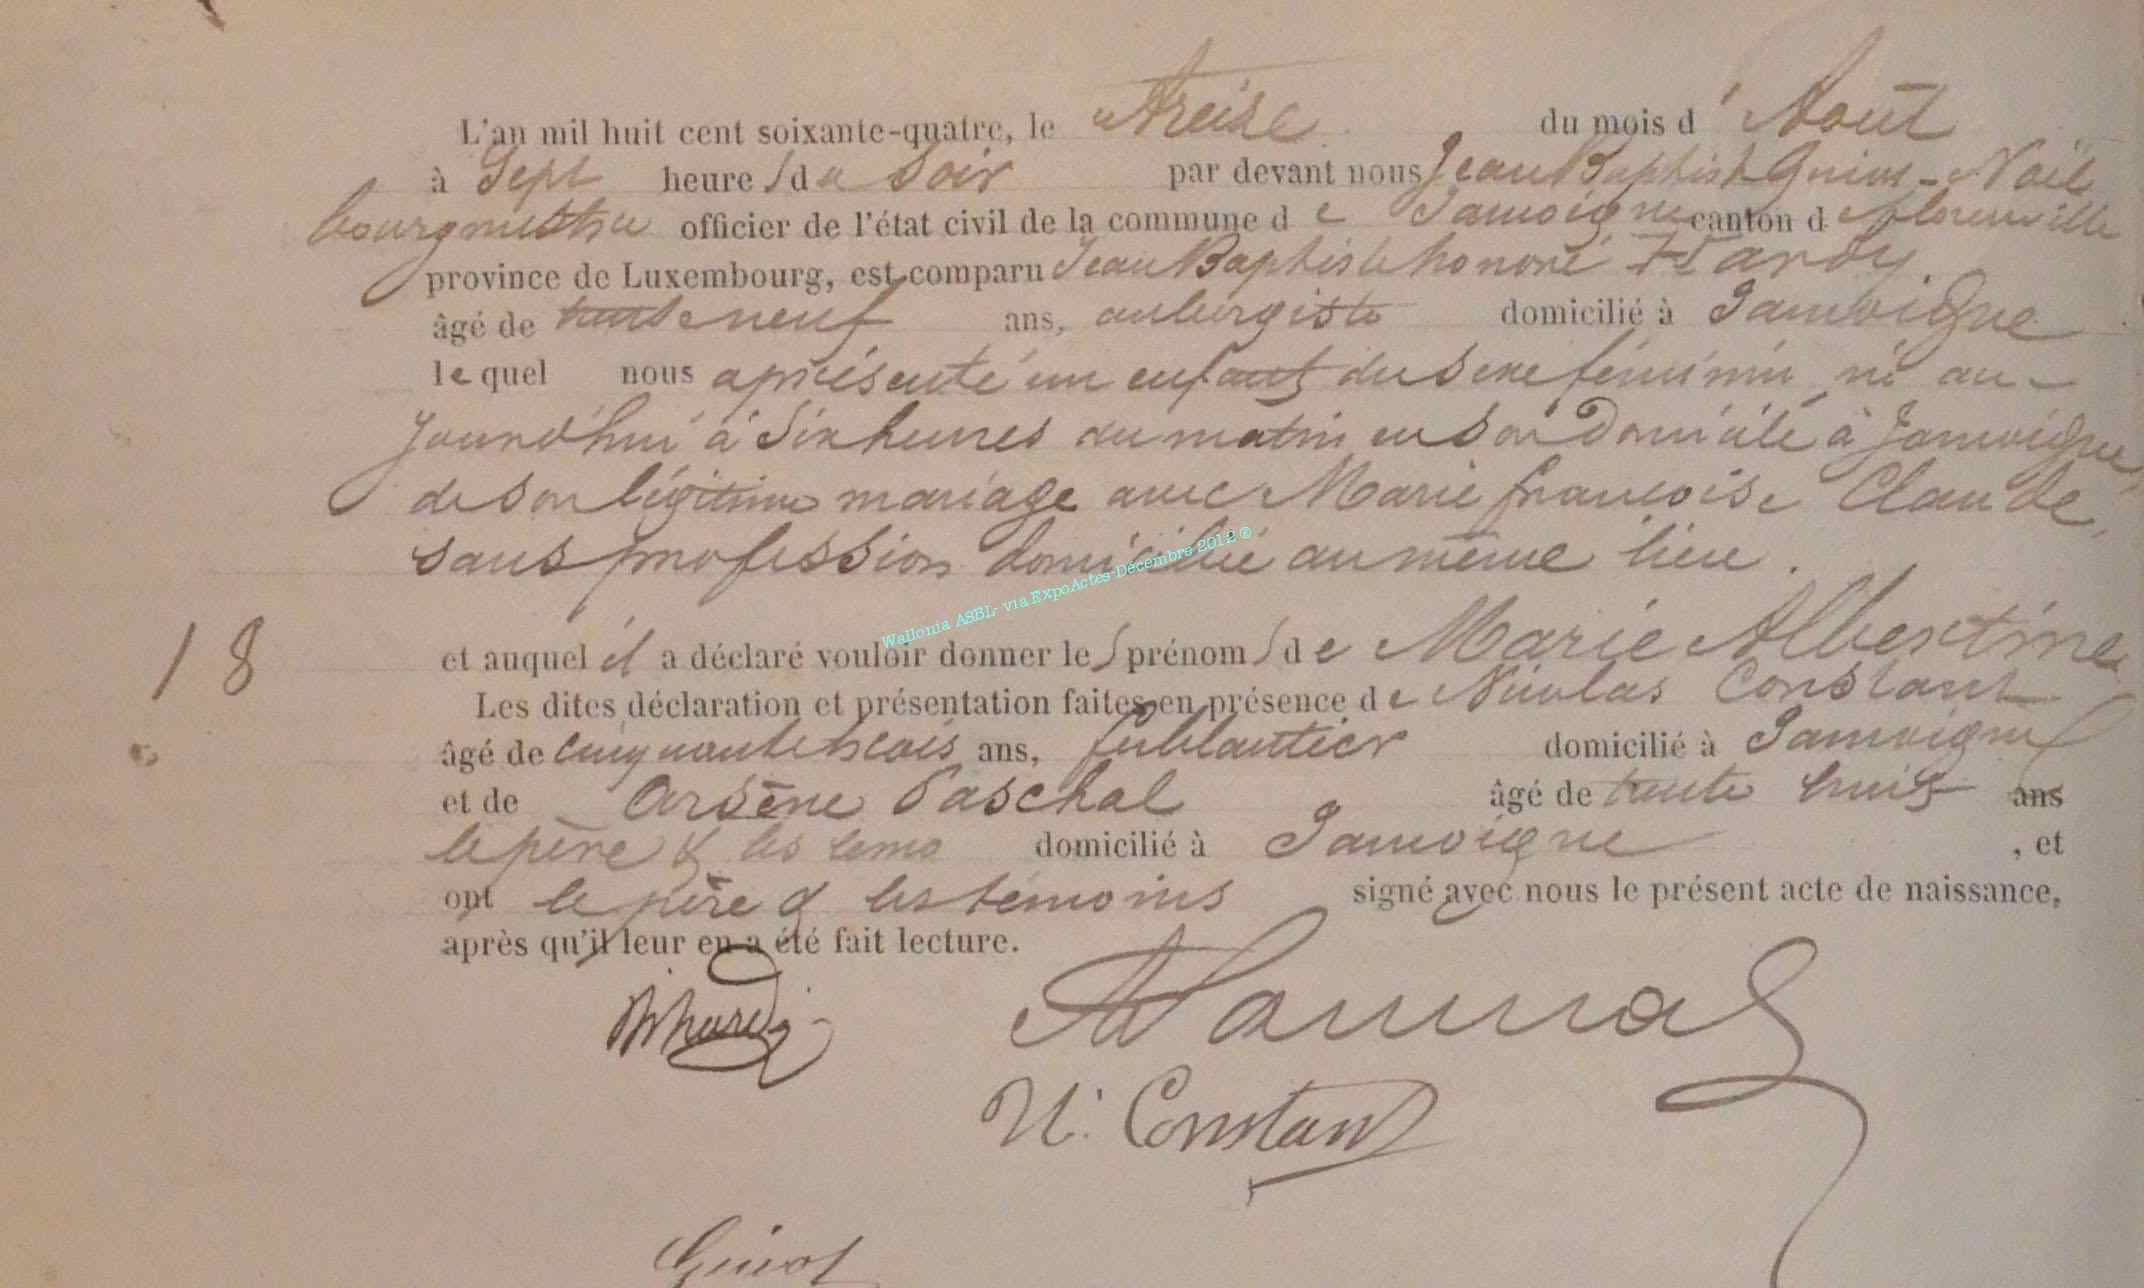 L'an mil huit cent soixante-quatre, le treise du mois d'Août
à Sept heures du Soir par devant nous Jean Baptiste Noël
bourgmestre officier de l'état civil de la commune de Jamoigne canton de florenville
province de Luxembourg, est comparu Jean Baptiste honoré Hardy.
âgé de trente neuf ans, aubergiste domicilié à Jamoigne
lequel nous a présenté un enfant du Sexe féminin, né au-
jourd'hui à Six heures du matin en Son Domicile à Jamoigne,
de Son légitime mariage avec Marie françoise Claude,
sans profession domicilié au même lieu.
Wallonia ASBL- via ExpoActes-Décembre 2012 ®
18
et auquel il a déclaré vouloir donner les prénoms de Marie Albertine
Les dites déclaration et présentation faites en présence de Nicolas Constant
âgé de cinquante trois ans, ferblantier domicilié à Jamoigne
et de Arsène Paschal âgé de trente huit ans
le père & les temo domicilié à Jamoigne, et
ont le père & les témoins signé avec nous le présent acte de naissance,
après qu'il leur en a été fait lecture.
N. Constant